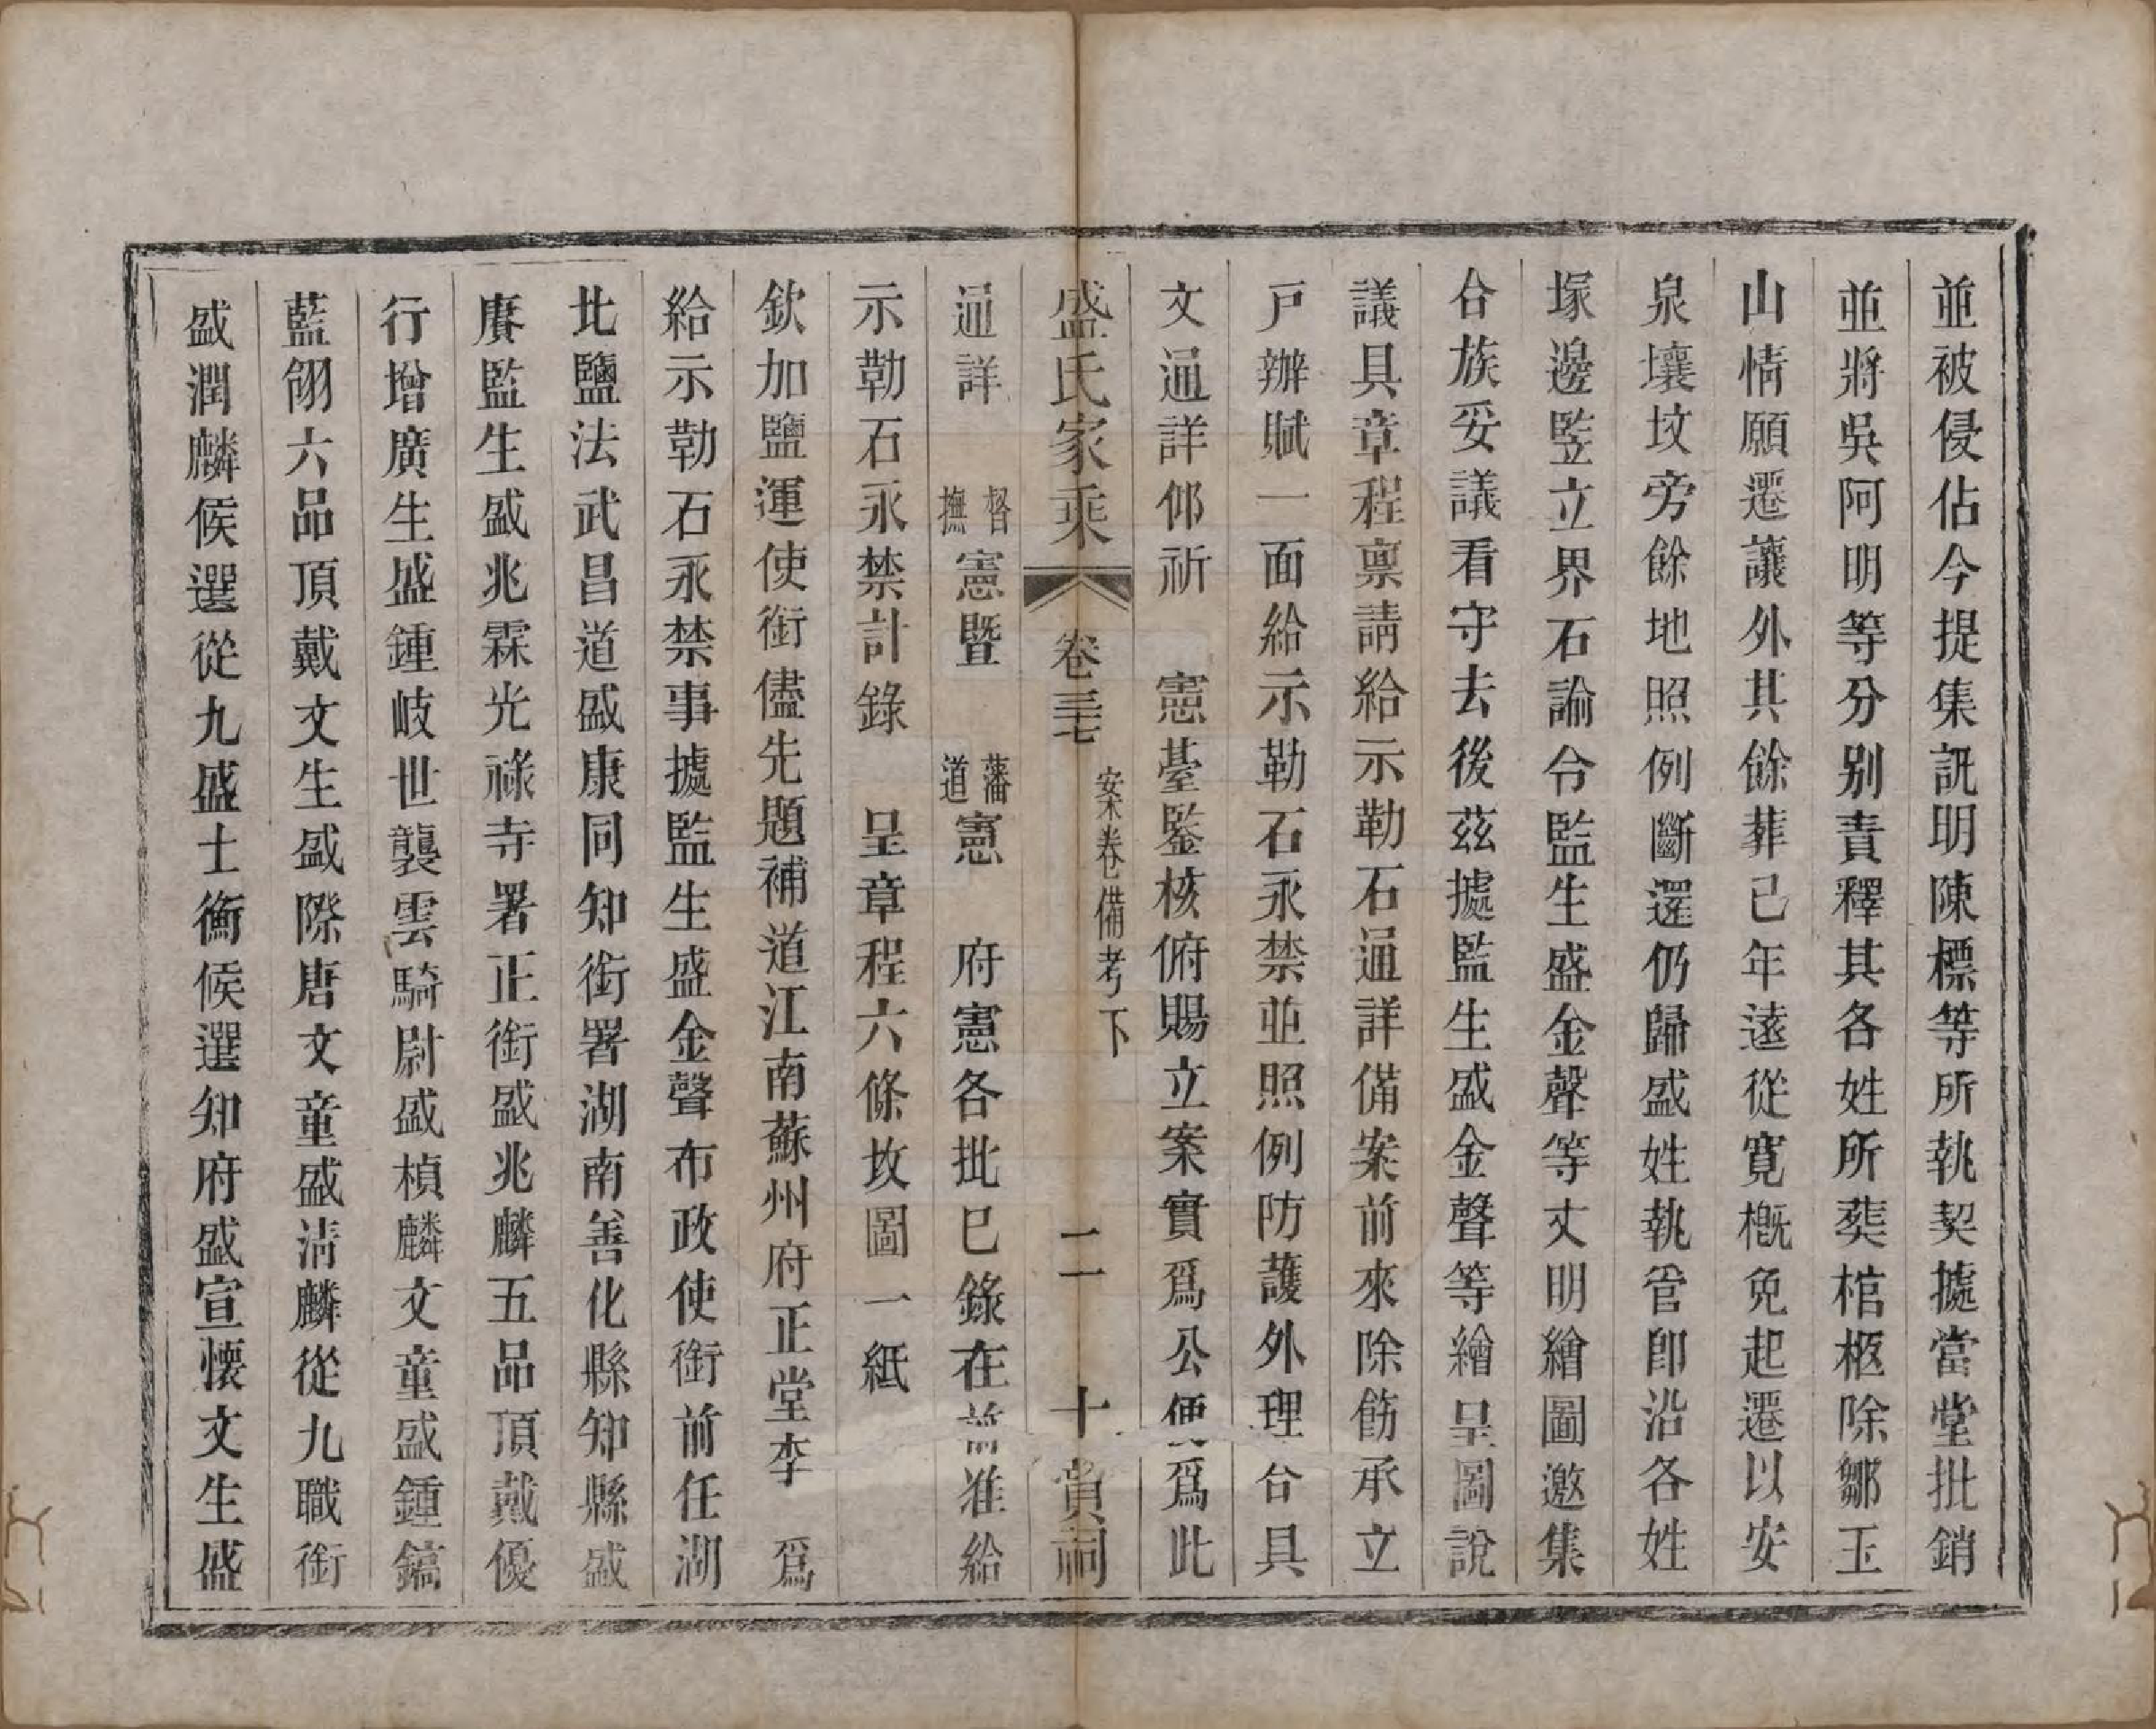 並被侵佔今提集訊明陳標等所執契據當堂批銷
並將吳阿明等分别責釋其各姓所葬棺柩除鄒玉
山情願遷讓外其餘葬已年遠從寬槪免起遷以安
泉壤坟旁餘地照例斷還仍歸盛姓執管卽沿各姓
塚邊竪立界石諭令監生盛金聲等丈明繪圖邀集
合族妥議看守去後茲據監生盛金聲等繪呈圖說
議具章程禀請給示勒石通詳備案前來除飭承立
戸辦賦一面給示勒石永禁並照例防護外理合具
文通詳仰祈　憲臺鑒核俯賜立案實爲公便爲此
盛氏家乘　卷三十七　案卷備考下　二一　十賁祠
通詳　督撫憲暨　藩道憲　府憲各批巳錄在前准給
示勒石永禁計錄　呈章程六條坟圖一紙
欽加鹽運使銜儘先題補道江南蘇州府正堂李　爲
給示勒石永禁事據監生盛金聲布政使銜前任湖
北鹽法武昌道盛康同知銜署湖南善化縣知縣盛
賡監生盛兆霖光祿寺署正銜盛兆麟五品頂戴優
行增廣生盛鍾岐世襲雲騎尉盛楨麟文童盛鍾鎬
藍翎六品頂戴文生盛際唐文童盛淸麟從九職銜
盛潤麟候選從九盛士衡候選知府盛宣懷文生盛